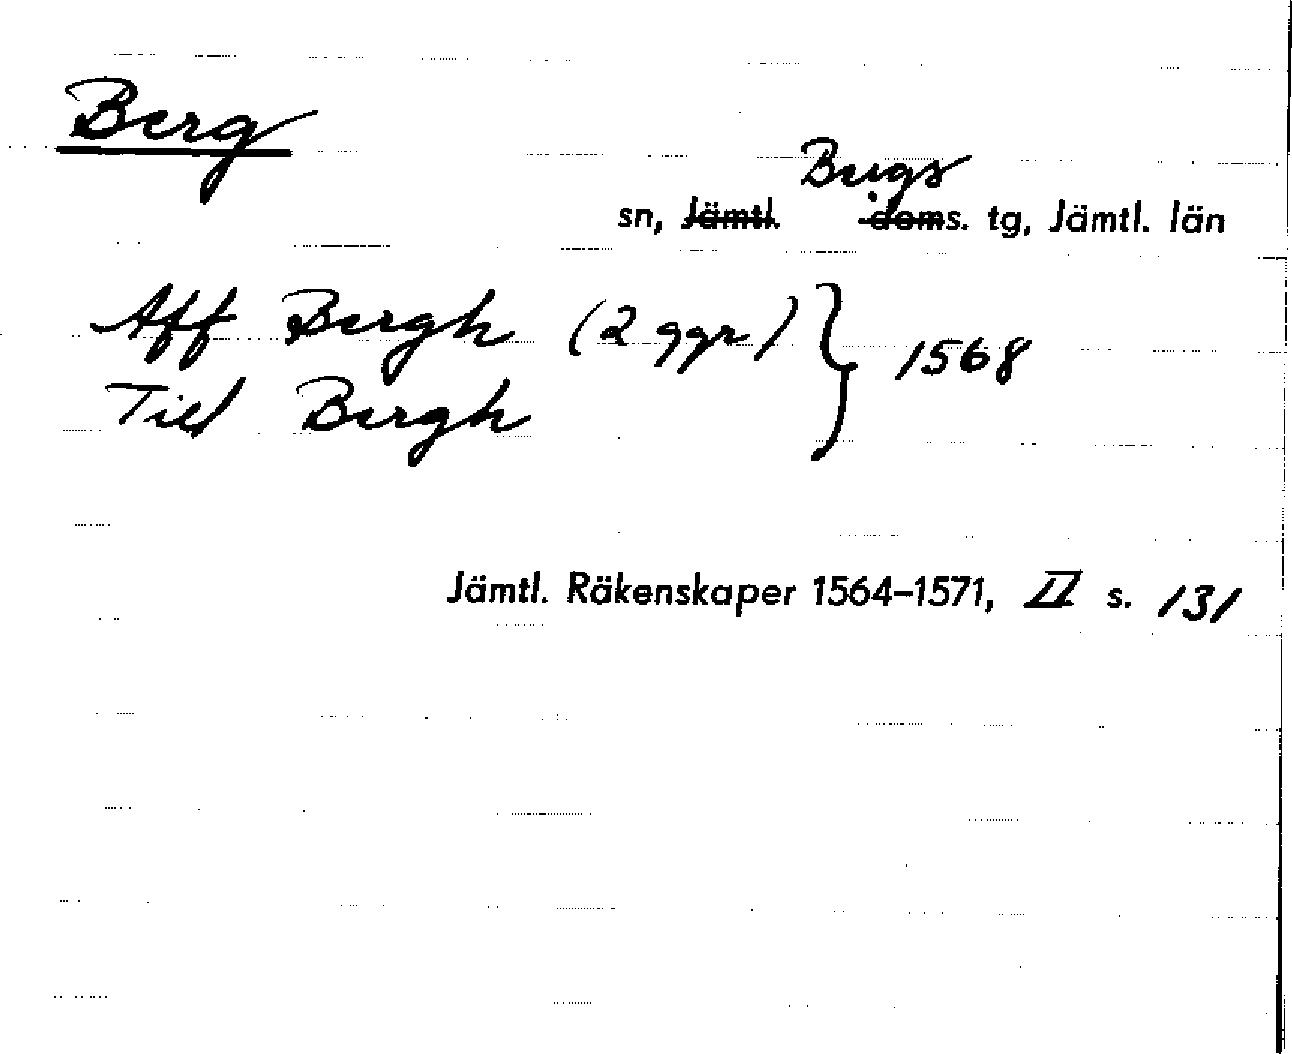 Berg
Bergs
sn, Jämtl. doms. tg, Jämtl. län
Aff Bergh (2 ggr) } 1568
Till Bergh
Jämtl. Räkenskaper 1564–1571, II s. 131